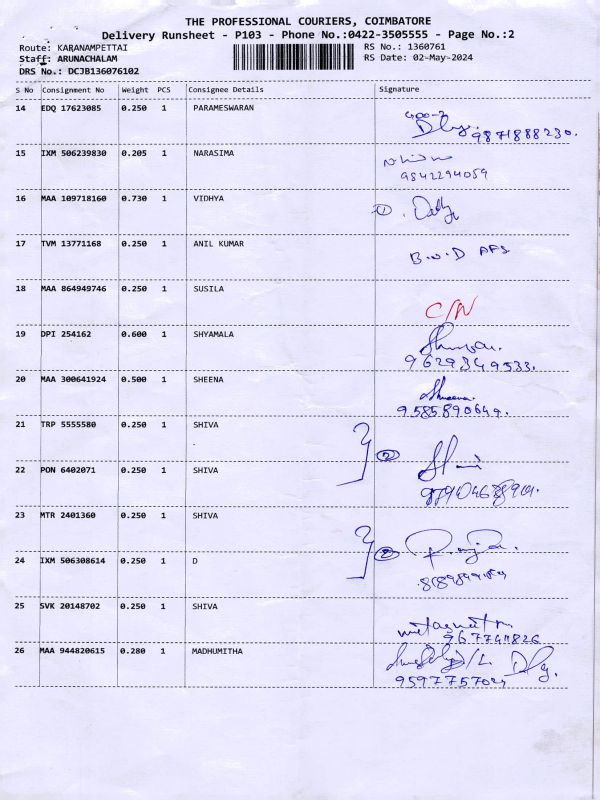 THE PROFESSIONAL COURIERS, COIMBATORE
Delivery Runsheet - P103 - Phone No.:0422-3505555 - Page No.:2
Route: KARANAMPETTAI RS No.: 1360761
Staff: ARUNACHALAM RS Date: 02-May-2024
DRS No.: DCJB136076102
S No Consignment No Weight PCS Consignee Details Signature
14 EDQ 17623085 0.250 1 PARAMESWARAN
9871888230.
15 IXM 506239830 0.205 1 NARASIMA
9842294059
16 MAA 109718160 0.730 1 VIDHYA
①
17 TVM 13771168 0.250 1 ANIL KUMAR
B.O.D AFS
18 MAA 864949746 0.250 1 SUSILA
C/N
19 DPI 254162 0.600 1 SHYAMALA
9629349533.
20 MAA 300641924 0.500 1 SHEENA
Sheena.
9585890649.
21 TRP 5555580 0.250 1 SHIVA
②
22 PON 6402071 0.250 1 SHIVA
23 MTR 2401360 0.250 1 SHIVA
②
24 IXM 506308614 0.250 1 D
25 SVK 20148702 0.250 1 SHIVA
26 MAA 944820615 0.280 1 MADHUMITHA